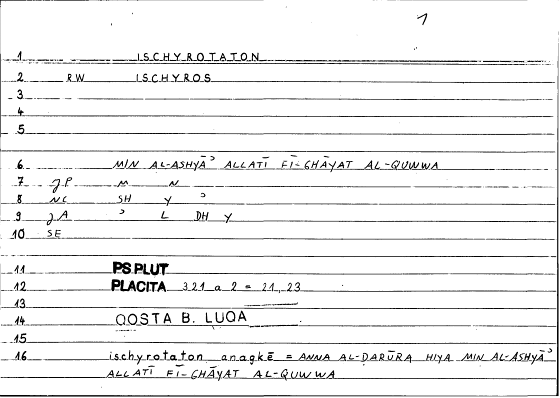 1
1 ISCHYROTATON
2 RW ISCHYROS
3
4
5
6 MIN AL-ASHYĀʾ ALLATĪ FĪ-GHĀYAT AL-QUWWA
7 JP M N
8 NC SH Y ʾ
9 JA ʾ L DH Y
10 SE
11 PS PLUT
12 PLACITA 321 a 2 = 21,23
13
14 QOSTA B. LUQA
15
16 ischyrotaton anagkē = ANNA AL-DARŪRA HIYA MIN AL-ASHYĀʾ
ALLATĪ FĪ-GHĀYAT AL-QUWWA